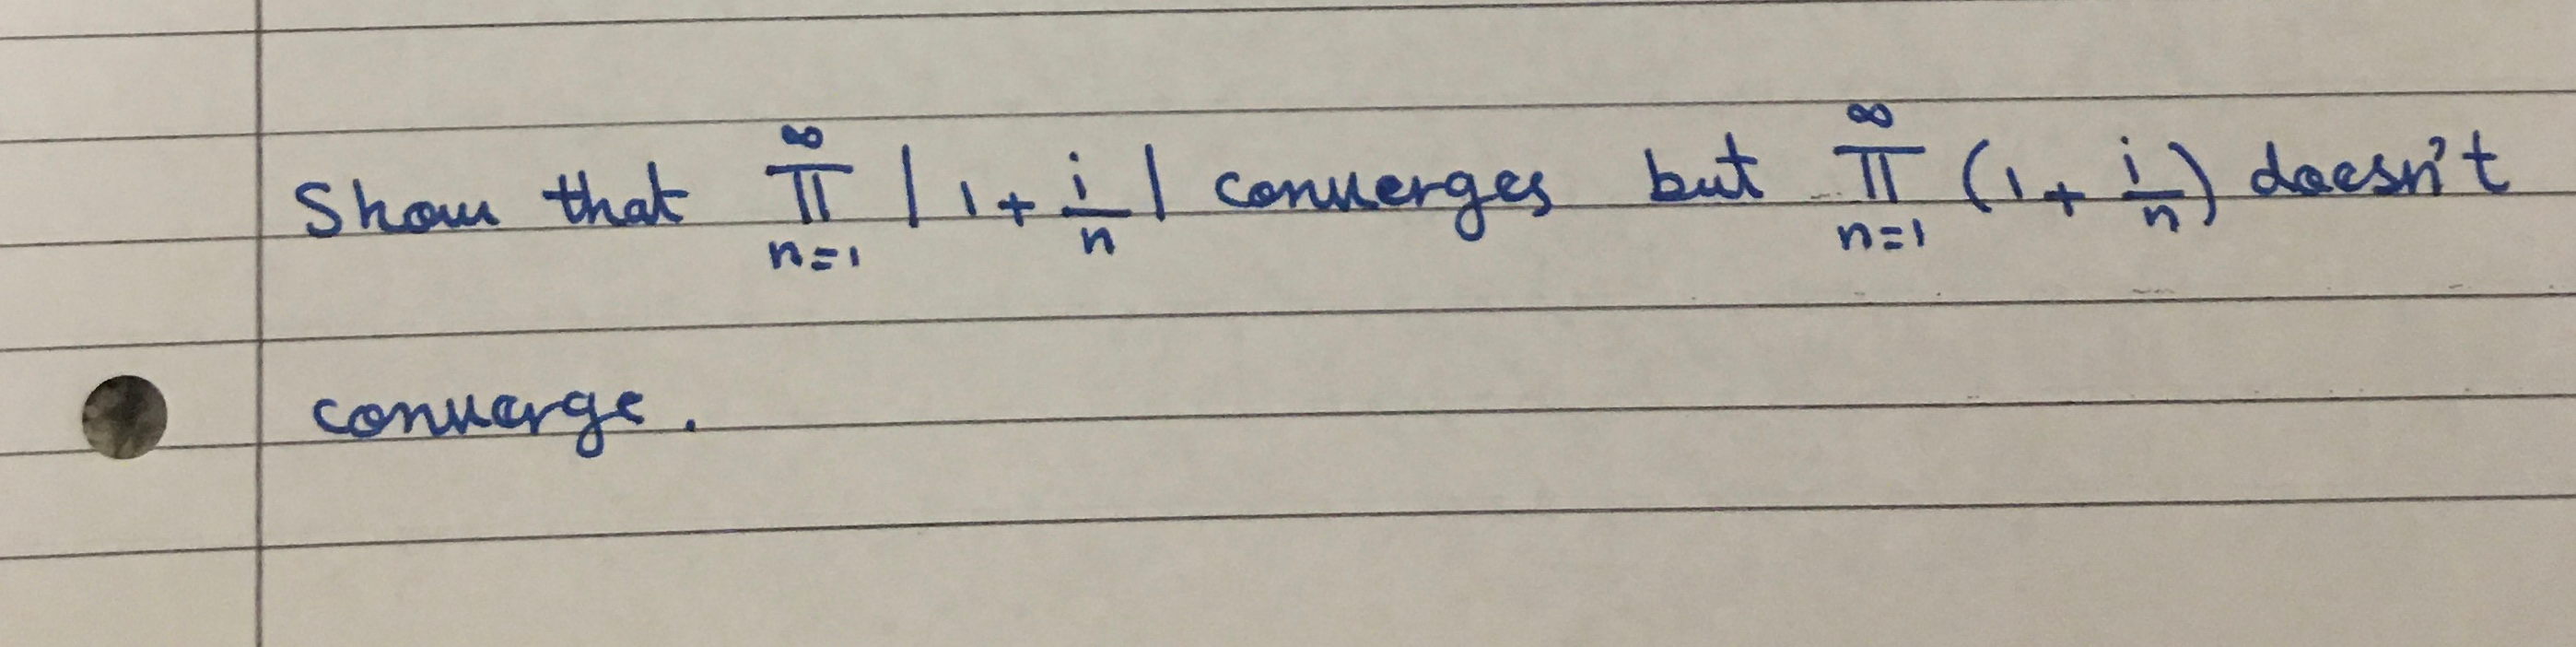 Show that ∞∏n=1 |1 + i/n| converges but ∞∏n=1 (1 + i/n) doesn't
converge.